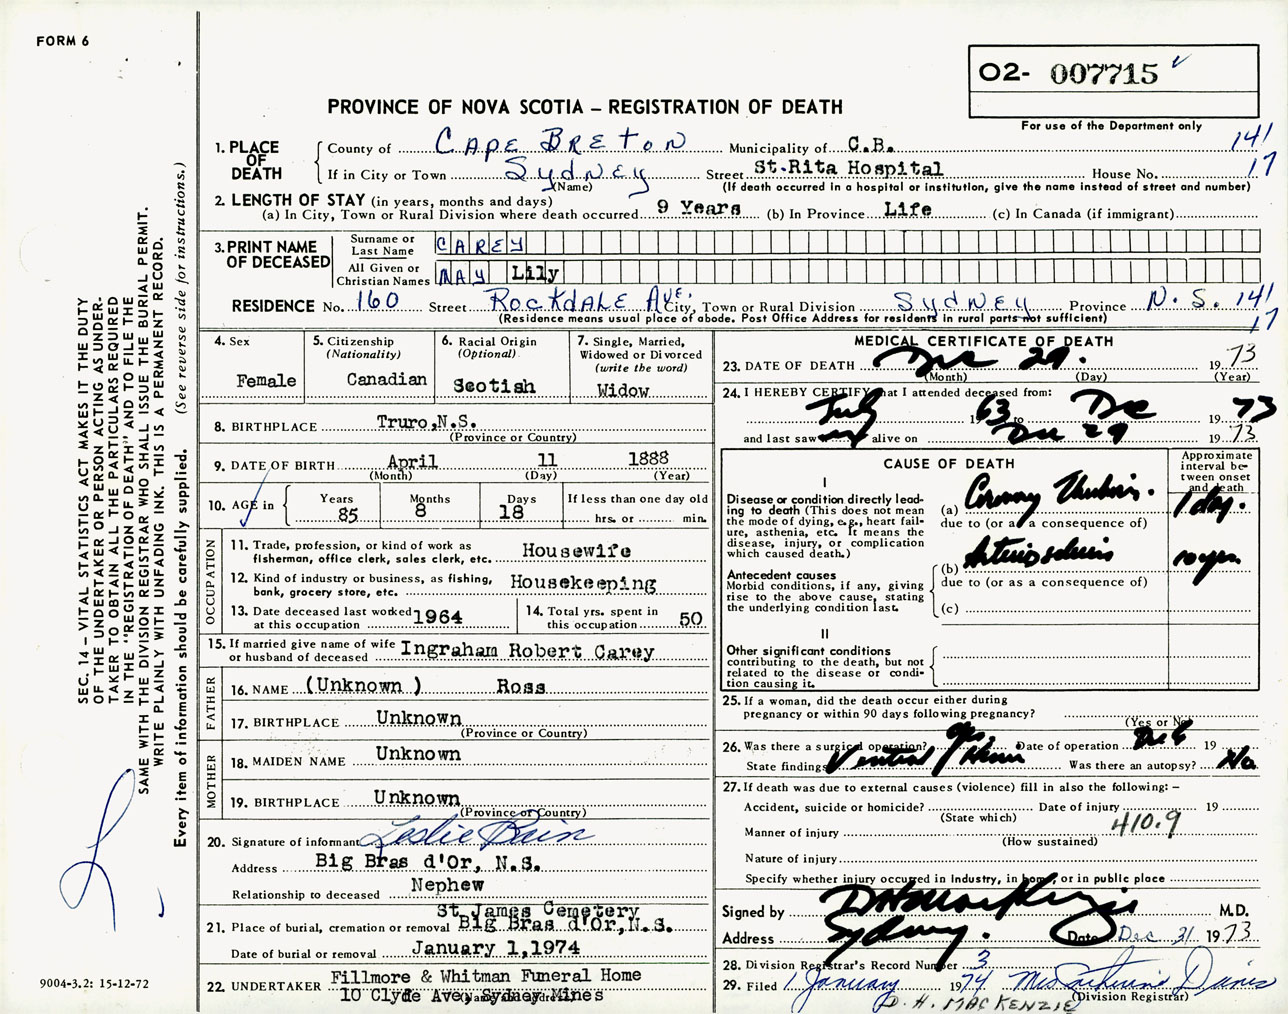 FORM 6
O2- 007715
For use of the Department only
PROVINCE OF NOVA SCOTIA – REGISTRATION OF DEATH
SEC. 14 – VITAL STATISTICS ACT MAKES IT THE DUTY
OF THE UNDERTAKER OR PERSON ACTING AS UNDER-
TAKER TO OBTAIN ALL THE PARTICULARS REQUIRED
IN THE "REGISTRATION OF DEATH" AND TO FILE THE
SAME WITH THE DIVISION REGISTRAR WHO SHALL ISSUE THE BURIAL PERMIT.
WRITE PLAINLY WITH UNFADING INK. THIS IS A PERMANENT RECORD.
Every item of information should be carefully supplied. (See reverse side for instructions.)
9004-3.2: 15-12-72
1. PLACE OF DEATH
County of CAPE BRETON Municipality of C.B. 141
If in City or Town SYDNEY Street St.Rita Hospital House No. 17
(Name) (If death occurred in a hospital or institution, give the name instead of street and number)
2. LENGTH OF STAY (in years, months and days)
(a) In City, Town or Rural Division where death occurred 9 Years (b) In Province Life (c) In Canada (if immigrant)
3. PRINT NAME OF DECEASED
Surname or Last Name CAREY
All Given or Christian Names MAY Lily
RESIDENCE No. 160 Street ROCKDALE AVE. City, Town or Rural Division SYDNEY Province N. S. 141
(Residence means usual place of abode. Post Office Address for residents in rural parts not sufficient) 17
4. Sex
Female
5. Citizenship
(Nationality)
Canadian
6. Racial Origin
(Optional)
Scotish
7. Single, Married,
Widowed or Divorced
(write the word)
Widow
8. BIRTHPLACE Truro,N.S.
(Province or Country)
9. DATE OF BIRTH April 11 1888
(Month) (Day) (Year)
10. AGE in Years 85 Months 8 Days 18 If less than one day old
hrs. or min.
OCCUPATION
11. Trade, profession, or kind of work as
fisherman, office clerk, sales clerk, etc. Housewife
12. Kind of industry or business, as fishing,
bank, grocery store, etc. Housekeeping
13. Date deceased last worked
at this occupation 1964
14. Total yrs. spent in
this occupation 50
15. If married give name of wife
or husband of deceased Ingraham Robert Carey
FATHER
16. NAME (Unknown ) Ross
17. BIRTHPLACE Unknown
(Province or Country)
MOTHER
18. MAIDEN NAME Unknown
19. BIRTHPLACE Unknown
(Province or Country)
20. Signature of informant Leslie Bain
Address Big Bras d'Or, N.S.
Relationship to deceased Nephew
St James Cemetery
21. Place of burial, cremation or removal Big Bras d'Or,N.S.
Date of burial or removal January 1,1974
22. UNDERTAKER Fillmore & Whitman Funeral Home
10 Clyde Ave, Sydney Mines
MEDICAL CERTIFICATE OF DEATH
23. DATE OF DEATH Dec 29. 1973
(Month) (Day) (Year)
24. I HEREBY CERTIFY that I attended deceased from:
July 1963 to Dec 1973
and last saw alive on Dec 29 1973
CAUSE OF DEATH
Approximate
interval be-
tween onset
and death
I
Disease or condition directly lead-
ing to death (This does not
mean the mode of dying, e.g., heart fail-
ure, asthenia, etc. It means the
disease, injury, or complication
which caused death.)
(a) Coronary Thrombosis. 1 day.
due to (or as a consequence of)
Antecedent causes
Morbid conditions, if any, giving
rise to the above cause, stating
the underlying condition last.
(b) Arteriosclerosis 10 yrs
due to (or as a consequence of)
(c)
II
Other significant conditions
contributing to the death, but not
related to the disease or condi-
tion causing it.
25. If a woman, did the death occur either during
pregnancy or within 90 days following pregnancy?
(Yes or No)
26. Was there a surgical operation? yes. Date of operation Dec 6 19
State findings Ventral Hernia Was there an autopsy? No
27. If death was due to external causes (violence) fill in also the following: –
Accident, suicide or homicide? Date of injury 19
(State which) 410.9
Manner of injury
(How sustained)
Nature of injury
Specify whether injury occured in Industry, in home, or in public place
Signed by D H MacKenzie M.D.
Address Sydney. Date Dec 31 1973
28. Division Registrar's Record Number 3
29. Filed 1 January 1974 Mrs Catherine Davis
(Division Registrar)
D. H. MACKENZIE